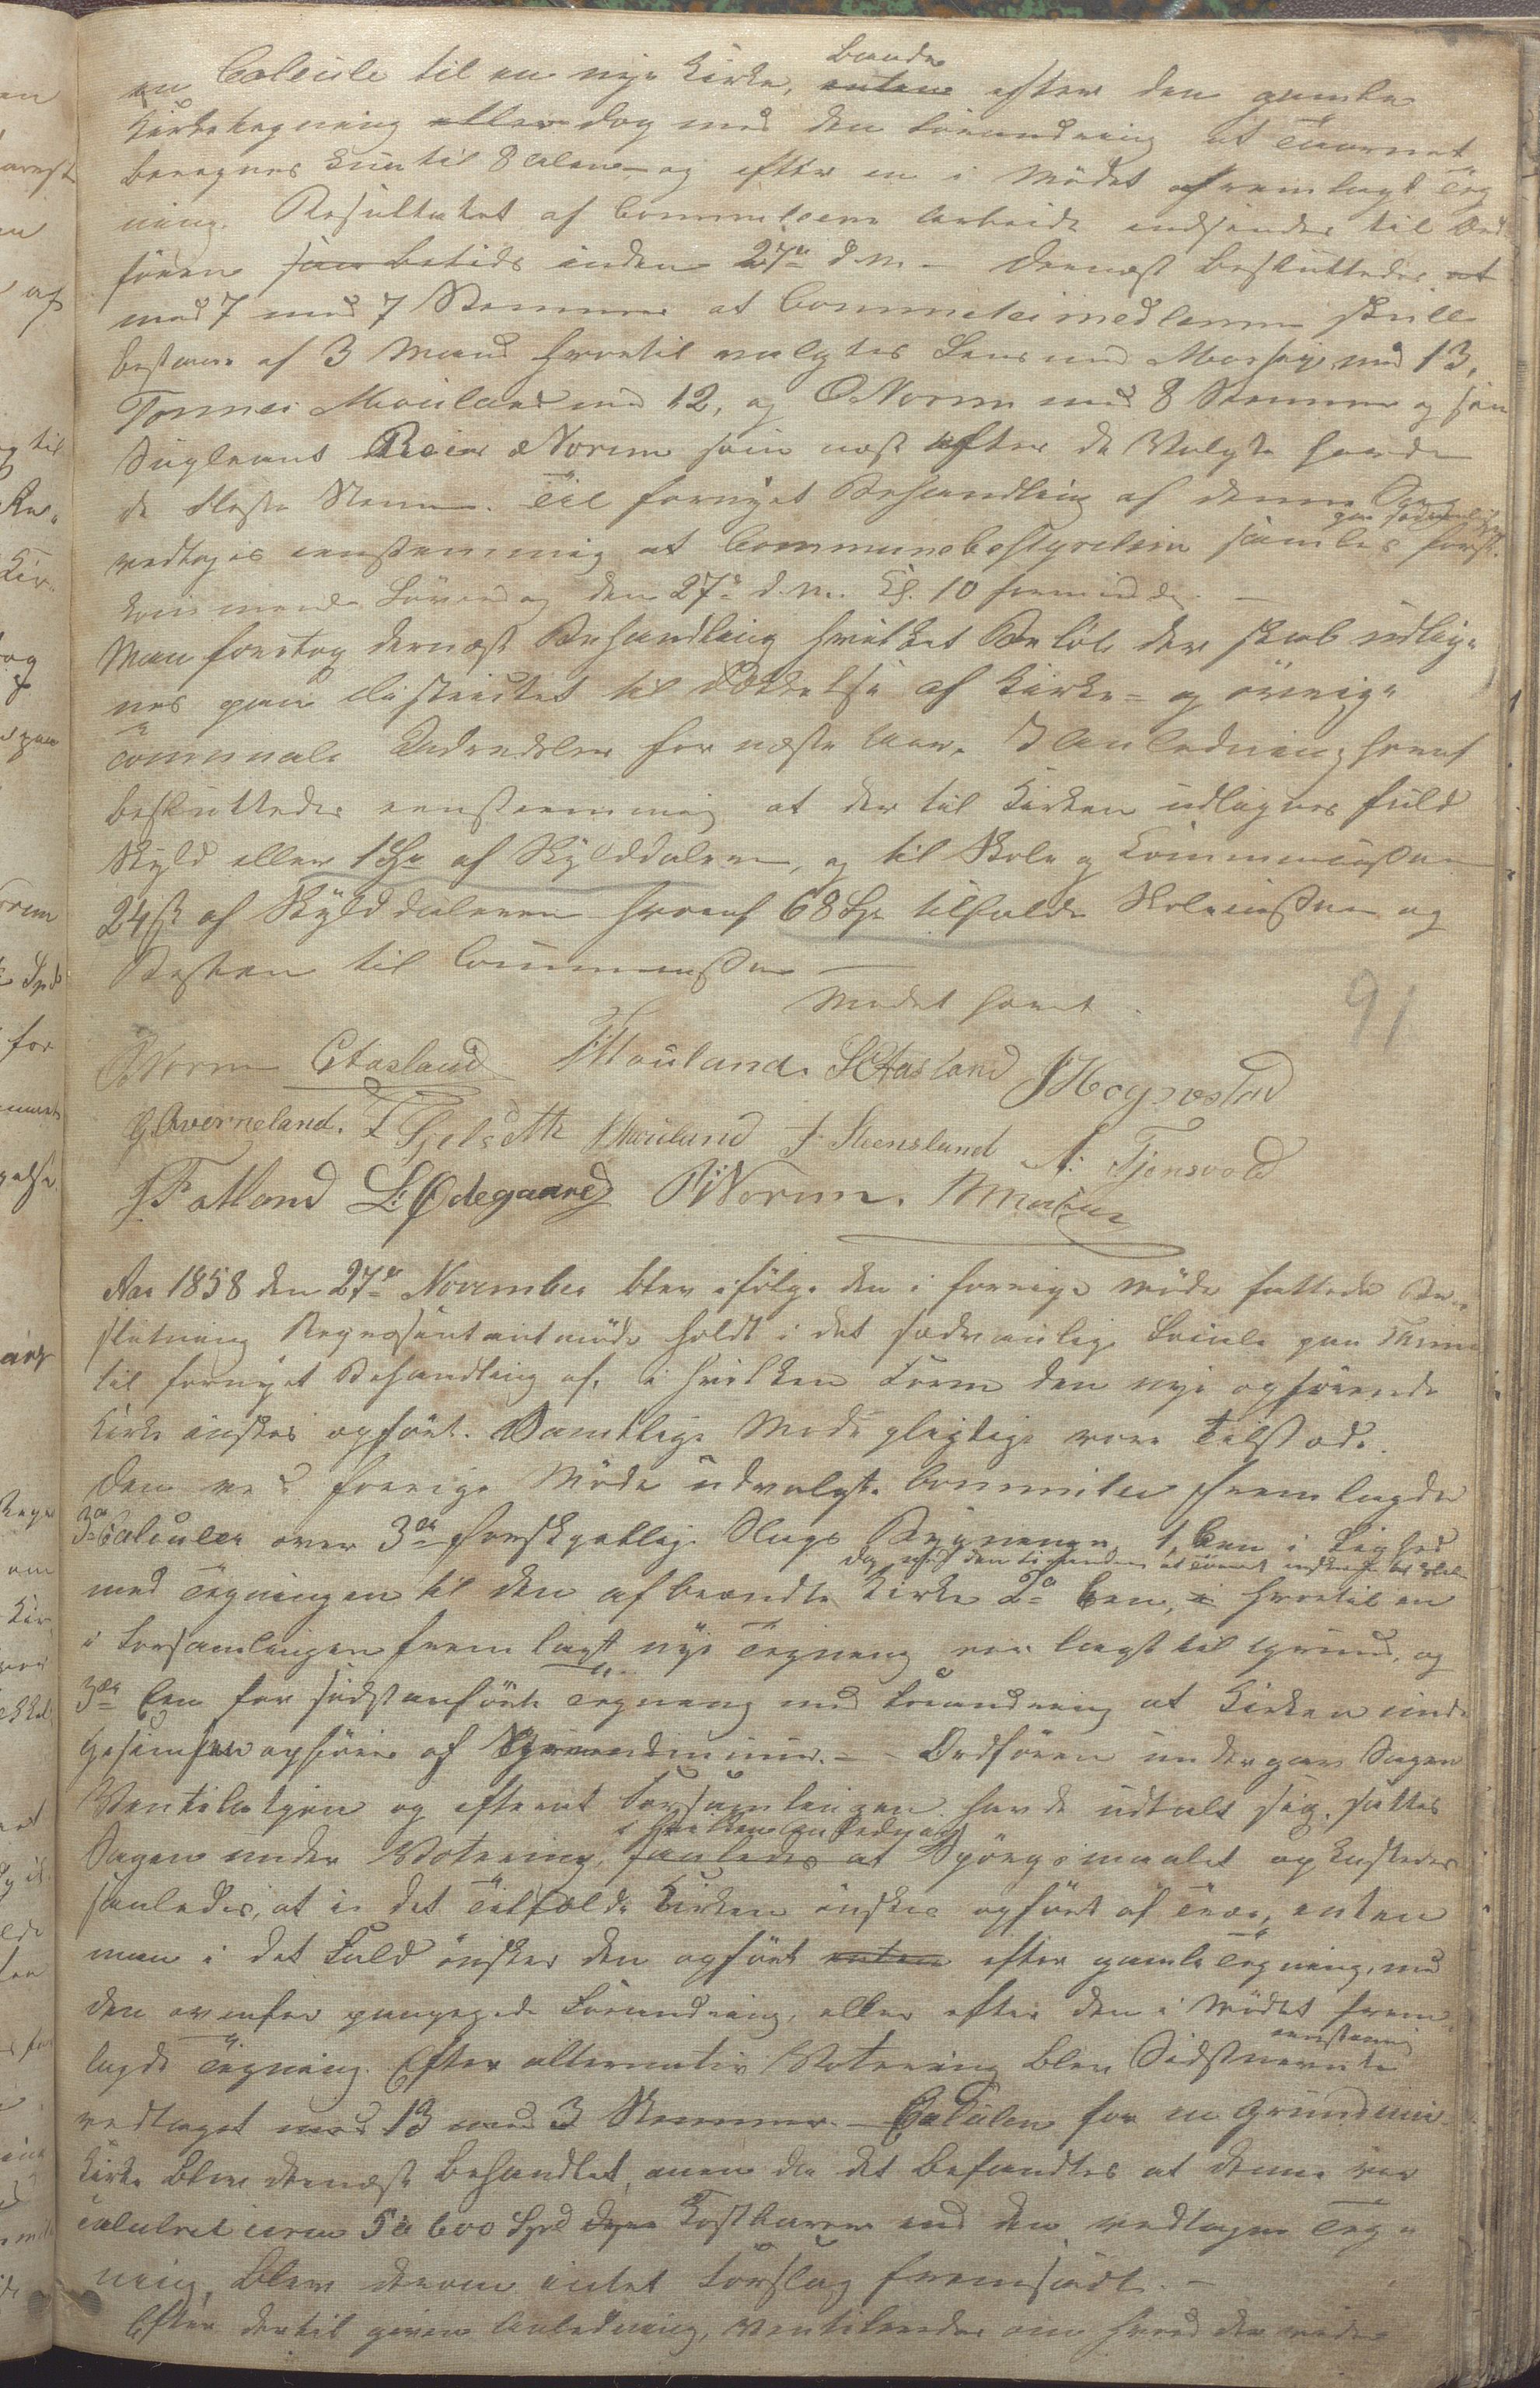 en Calcule til en nye Kirke, baade enten efter den gamle
Kirketegning eller dog med den Forandring at Taarnet
beregnes kun til 8 Alen og efter en i Mødet fremlagt Teg
ning. Resultatet af Committeens Arbeide indsendes til Ord
føren saa betids inden 27de d. M. – Dernæst besluttedes at
med 7 mod 7 Stemmer at Committeimedlemmer skulle
bestaae af 3 Mand hvortil valgtes Lensmd Moshøy med 13,
Tønnes Mouland med 12, og O Norem med 8 Stemmer og som
Supleant Reier Norem som næst efter de Valgte havde
de fleste Stemmer. Til fornyet Behandling af denne Sag
vedtoges eenstemmig at Communebestyrelsen samles paa sædvanlig først-
kommende Løverdag den 27de d. M. Kl. 10 formiddag. –
Man foretog dernæst Behandling hvilket Beløb der skal udlig-
nes paa Distriktet til Dækkelse af Kirke- og øvrige
comunale Udredsler for næste Aar. I Anledning heraf
besluttedes eenstemmig at der til Kirken udlignes fuld
Skyld eller 1 Spd af Skylddaleren, og til Skole og Kommunekassen
24 sk af Skylddaleren hvoraf 68 Spd tilfalde Skolekassen og
Resten til Communekassen –
Mødet hævet.
91
Norem CAasland TMouland. S Aasland J Høgsvold
G Averneland. T Gjelseth Mouland T. Steensland A: Tjensvold
J Fatland L: Ødegaard R Norem.
Aar 1858 den 27de November blev ifølge den i forrige Møde fattede Be-
slutning Repræsentantmøde holdt i det sædvanlige Locale paa Thime
til fornyet Behandling af, i hvilken Form den nye opførende
Kirke ønskes opført. Samtlige Mødepligtige vare Tilstæde.
Den ved forrige Møde udvalgte Committee fremlagde
3de Calculer over 3de forskjællige Slags Bygninger, 1, Een i Lighed
med Tegningen til den afbrændte Kirke dog med den Forandring at Taarnet indskr. til 8 Alen 2de Een, hvortil en
i Forsamlingen fremlagt nye Tegning var lagt til Grund, og
3de Een for sidstanførte Tegning med Forandring at Kirken under
Gesimsen opføres af Grundmuur. – Ordføren undergav Sagen
Ventilasjon og efterat Forsamlingen havde udtalt sig, sattes
Sagen under Votering, i hvilken Anledning saaledes at Spørgsmaalet opkastedes
saaledes, at i det Tilfælde Kirken ønskes opført af Træ, enten
man i det Fald ønsker den opført enten efter gamle Tegning, med
den ovenfor paapegede Forandring, eller efter den i Mødet frem-
lagde Tegning. Efter alternativ Votering blev Sidstnævnte eenstemmig
vedtaget med 13 mod 3 Stemmer. – Calculen for en Grundmur
Kirke blev dernæst behandlet, men da det befandtes at denne var
calculeret circa 5 à 600 Spd dyre Kostbarere end den vedtagne Teg-
ning, blev derom intet Forslag fremsadt. –
Efter dertil given Anledning, ventileredes om hvad der videre